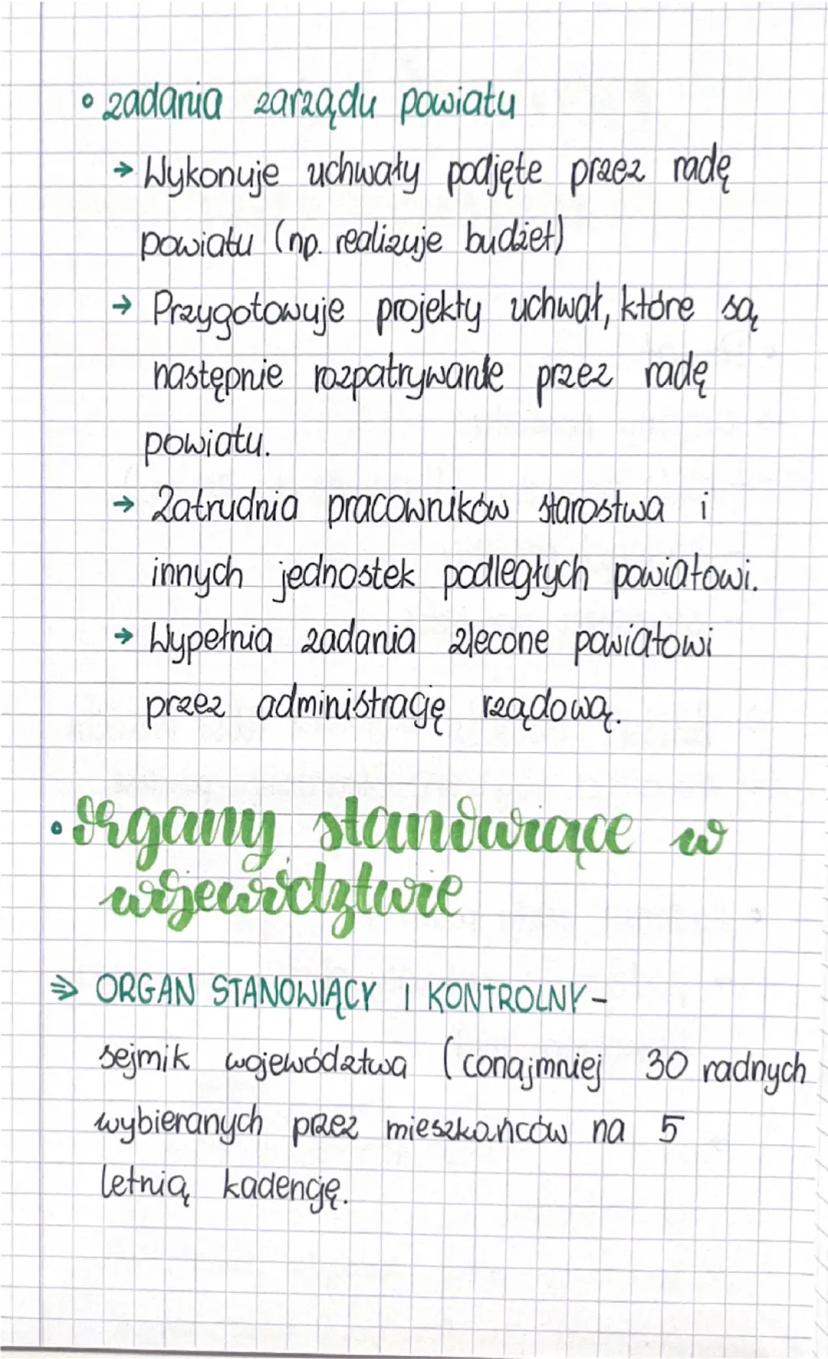 • zadania zarządu powiatu
→ Wykonuje uchwały podjęte przez radę
powiatu (np. realizuje budżet)
→ Przygotowuje projekty uchwał, które są
następnie rozpatrywanie przez radę
powiatu.
→ Zatrudnia pracowników starostwa i
innych jednostek podległych powiatowi.
→ Wypełnia zadania zlecone powiatowi
przez administrację rządową.
• Organy stanowiące w
województwie
⇒ ORGAN STANOWIĄCY I KONTROLNY –
sejmik województwa (conajmniej 30 radnych
wybieranych przez mieszkańców na 5
letnią kadencję.